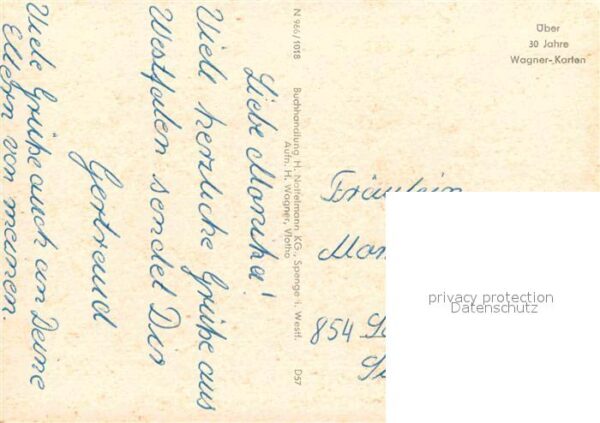 Liebe Monika!
Viele herzliche Grüße aus
Westfalen sendet Dir
Gertraud
Viele Grüße auch an Deine
Eltern von meinen.
N 966/1018 Buchhandlung H. Nottelmann KG., Spenge i. Westf. D57
Aufn. H. Wagner, Vlotho
Über
30 Jahre
Wagner-Karten
Fräulein
Mon
854
privacy protection
Datenschutz